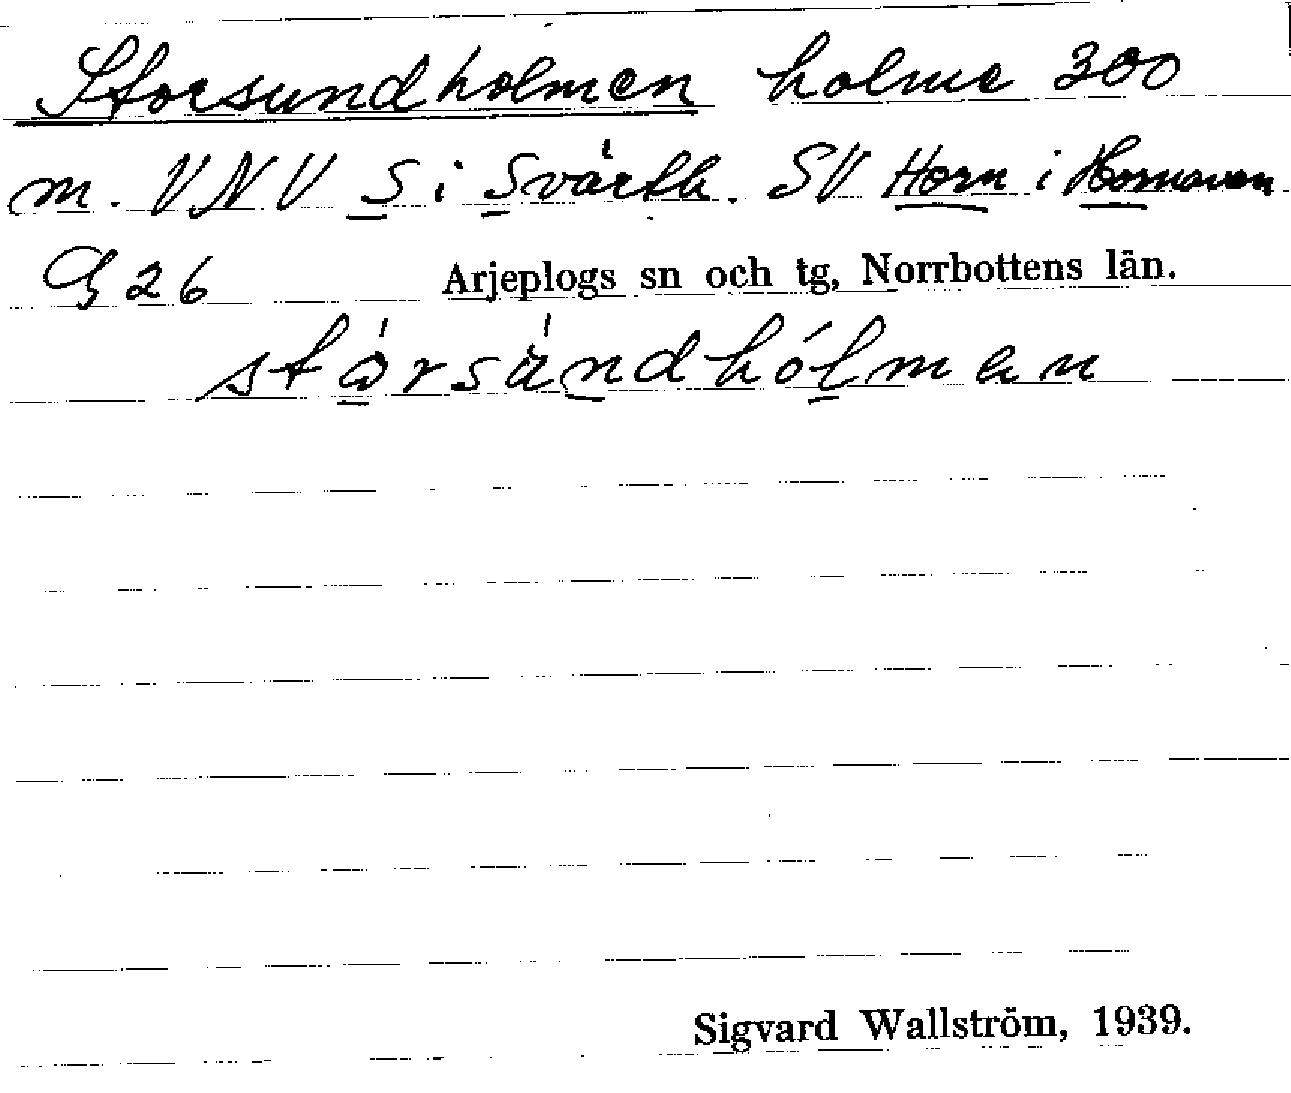 Storsundholmen holme 300
m. VNV S i Svärth. SV Horn i Hornavan
G 26 Arjeplogs sn och tg, Norrbottens län.
stórsúndhólmen
Sigvard Wallström, 1939.